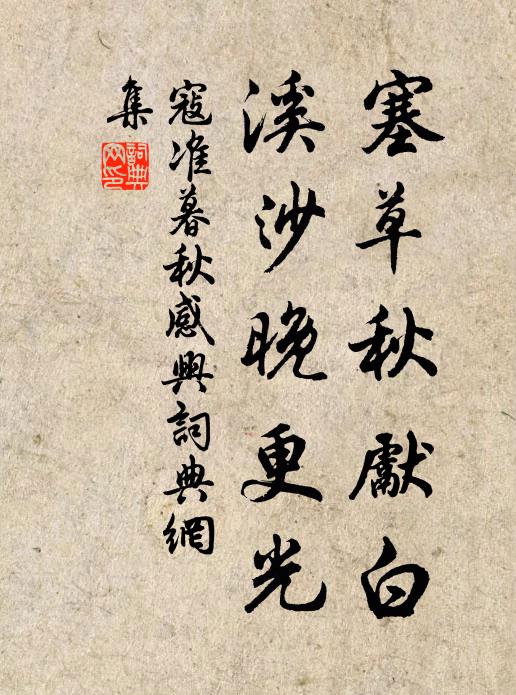 塞草秋獻白
溪沙晚更光
寇准暮秋感興詞典網
集
詞典
网印